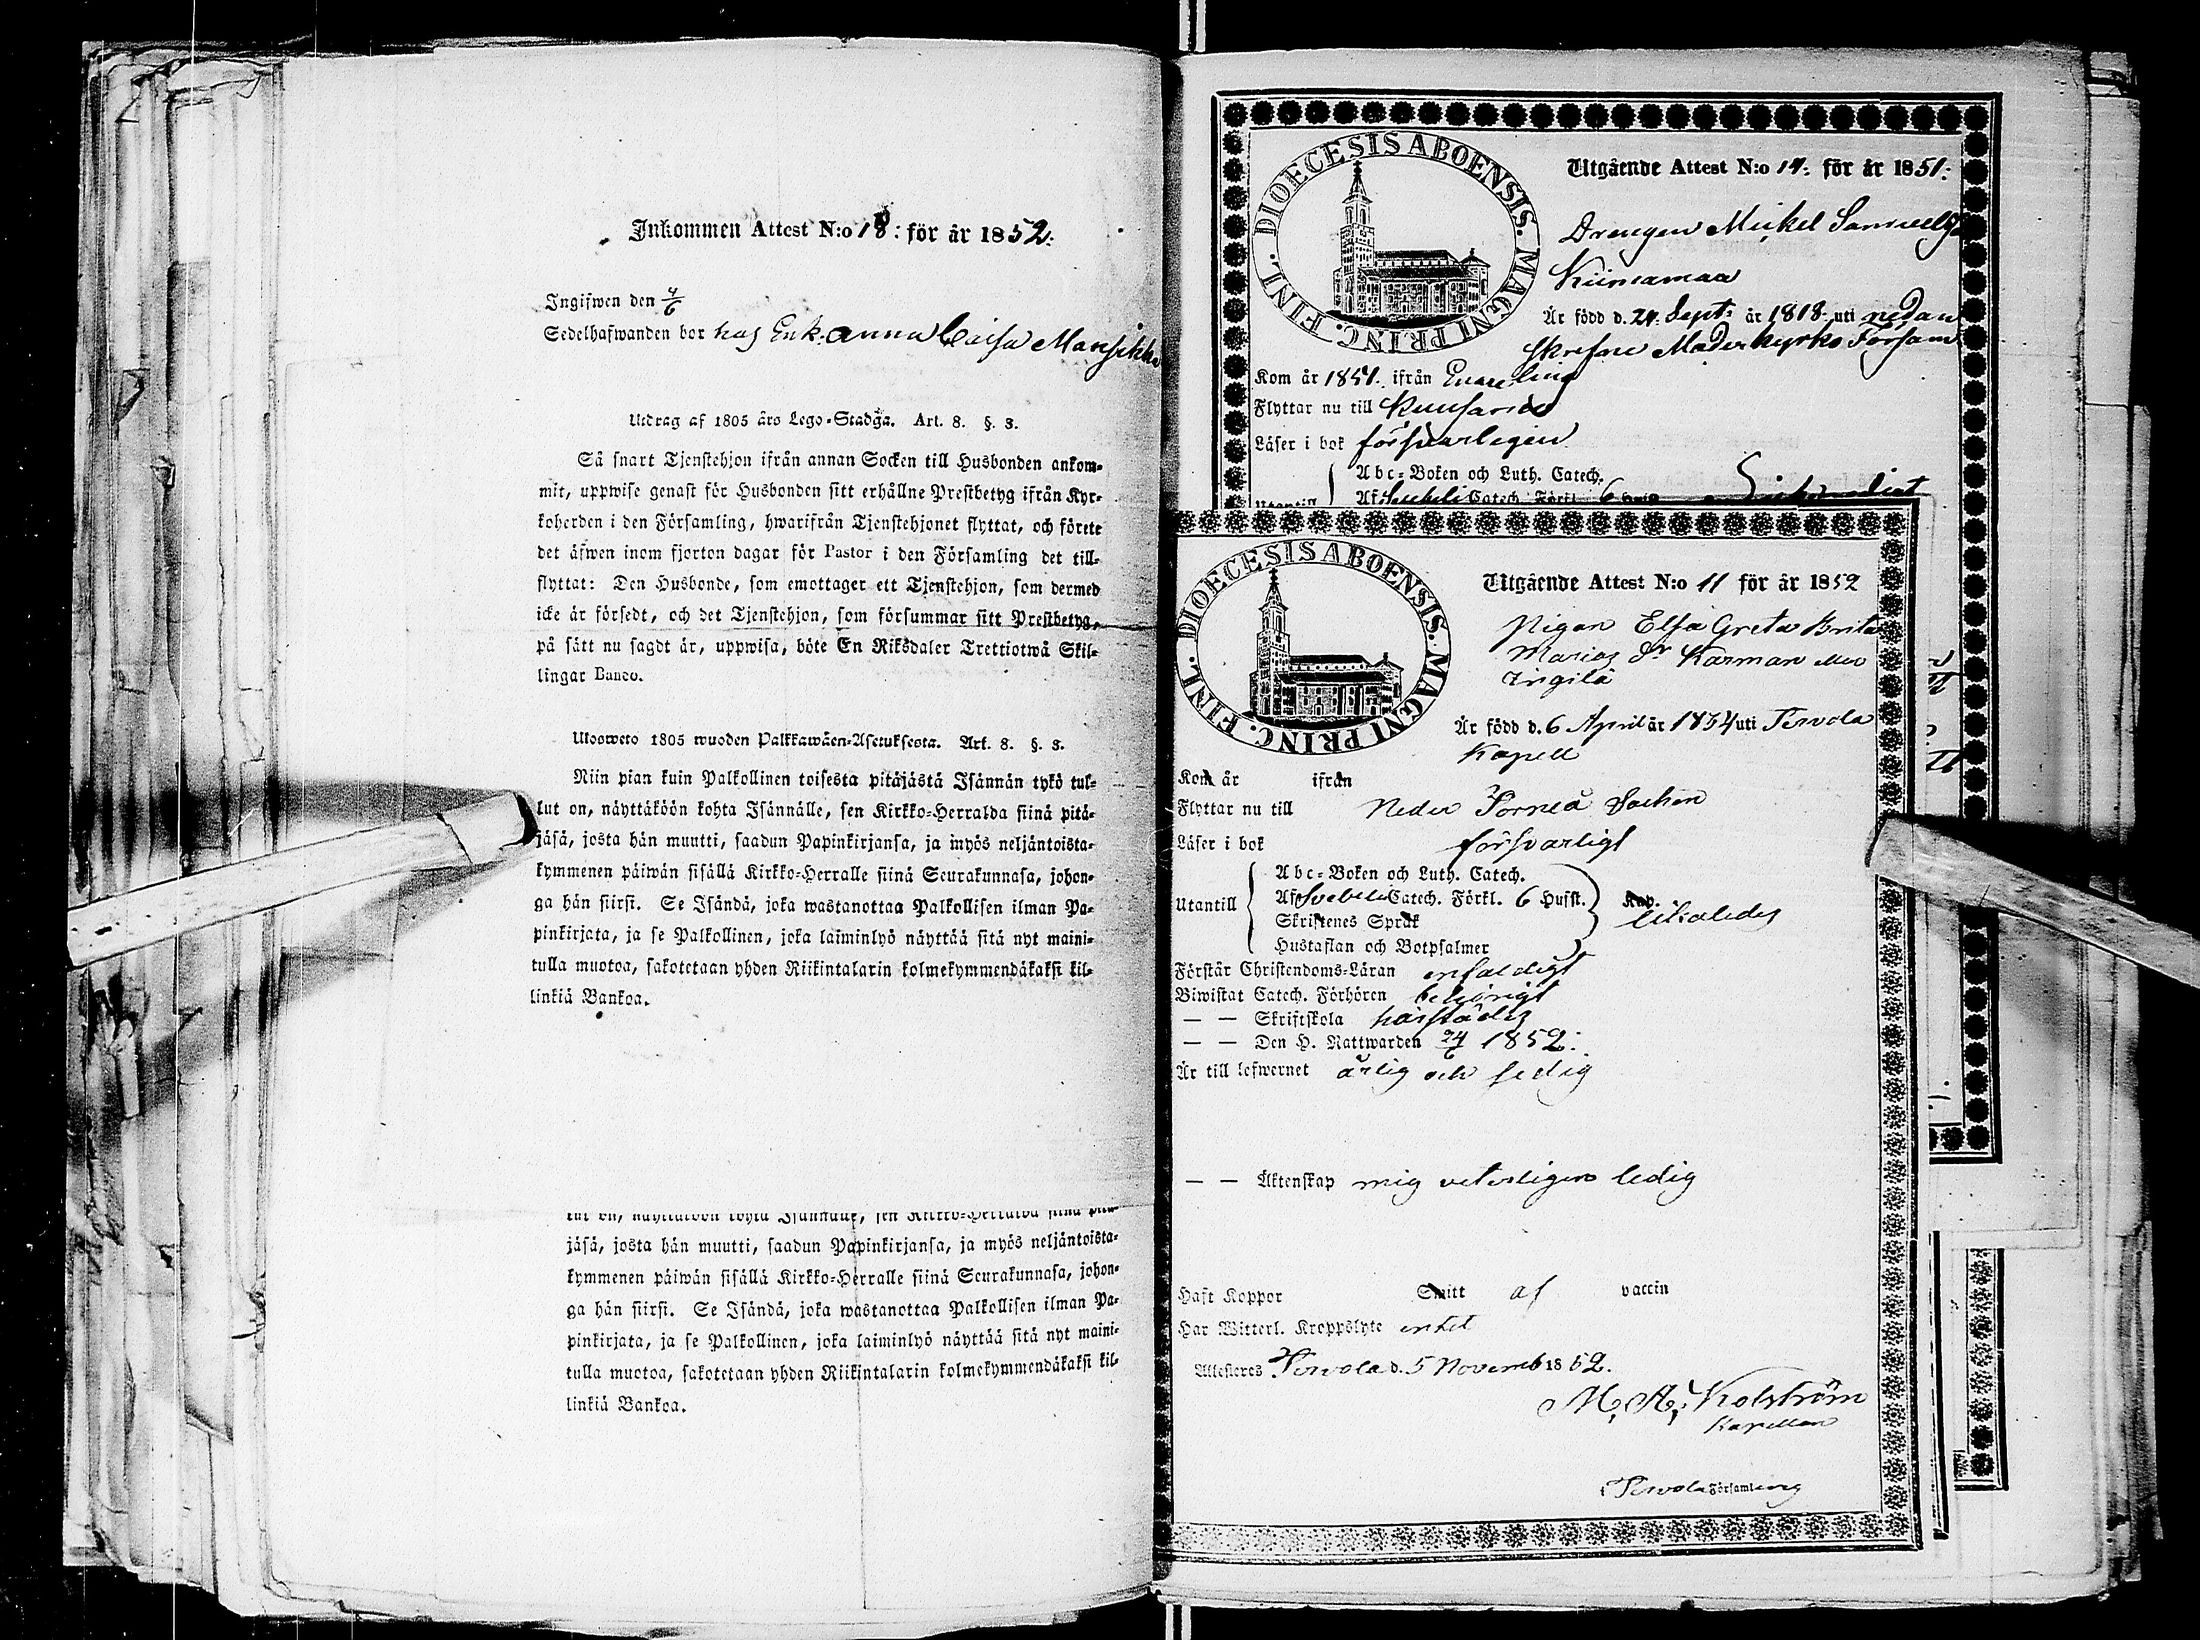 Inkommen Attest N:o 18: för år 1852:
Ingifwen den 4/6
Sedelhafwanden bor hos Enk. Anna Caisa Mansikka
Utdrag af 1805 års Lego-Stadga. Art. 8. §. 3.
Så snart Tjenstehjon ifrån annan Socken till Husbonden ankom-
mit, uppwise genast för Husbonden sitt erhållne Prestbetyg ifrån Kyr-
koherden i den Församling, hwarifrån Tjenstehjonet flyttat, och förete
det äfwen inom fjorton dagar för Pastor i den Församling det till-
flyttat: Den Husbonde, som emottager ett Tjenstehjon, som dermed
icke är försedt, och det Tjenstehjon, som försummar sitt Prestbetyg,
på sätt nu sagdt är, uppwisa, böte En Riksdaler Trettiotwå Skil-
lingar Banco.
Ulosweto 1805 wuoden Palkkawäen-Asetuksesta. Art. 8. §. 3.
Niin pian kuin Palkollinen toisesta pitäjästä Isännän tykö tul-
lut on, näyttäköön kohta Isännälle, sen Kirkko-Herralda siinä pitä-
jäsä, josta hän muutti, saadun Papinkirjansa, ja myös neljäntoista-
kymmenen päiwän sisällä Kirkko-Herralle siinä Seurakunnasa, johon-
ga hän siirsi. Se Isändä, joka wastanottaa Palkollisen ilman Pa-
pinkirjata, ja se Palkollinen, joka laiminlyö näyttää sitä nyt maini-
tulla muotoa, sakotetaan yhden Riikintalarin kolmekymmendäkaksi kil-
linkiä Bankoa.
lut on, näyttäköön kohta Isännälle, sen Kirkko-Herralda siinä pitä-
jäsä, josta hän muutti, saadun Papinkirjansa, ja myös neljäntoista-
kymmenen päiwän sisällä Kirkko-Herralle siinä Seurakunnasa, johon-
ga hän siirsi. Se Isändä, joka wastanottaa Palkollisen ilman Pa-
pinkirjata, ja se Palkollinen, joka laiminlyö näyttää sitä nyt maini-
tulla muotoa, sakotetaan yhden Riikintalarin kolmekymmendäkaksi kil-
linkiä Bankoa.
DIOECESIS ABOENSIS. MAGNI PRINC. FINL.
Utgående Attest N:o 14: för år 1851:
Drengen Mickel Samuels
Kiinamaa
Är född d. 24 Sept: år 1818: uti nedan
skrefne Moderkyrko Försam
Kom år 1851. ifrån
Flyttar nu till Kuusamo
Läser i bok försvarligen
Abc-Boken och Luth. Catech.
Af Svebelii Catech. Förkl. 6
DIOECESIS ABOENSIS. MAGNI PRINC. FINL.
Utgående Attest N:o 11 för år 1852
Pigan Elsa Greta Brita
Marias dr Karman
Ingilä
Är född d. 6 April år 1834 uti Tervola
Kapell
Kom år ifrån
Flyttar nu till Neder Torneå Socken
Läser i bok försvarligt
Utantill
Abc-Boken och Luth. Catech.
Af Svebelii Catech. Förkl. 6 Hufst. Kap.
Skriftenes Språk likaledes
Hustaflan och Botpsalmer
Förstår Christendoms-Läran enfaldigt
Biwistat Catech. Förhören behörigt
— — Skriftskola härstädes
— — Den H. Nattwarden 24/6 1852:
Är till lefwernet ärlig och sedig
— — Äktenskap mig veterligen ledig
Haft Koppor Smitt af vaccin
Har Witterl. Kroppslyte intet
Attesteres Tervola d. 5 Novemb 1852.
M. A. Kolström
Kapellan
i Tervola Församling